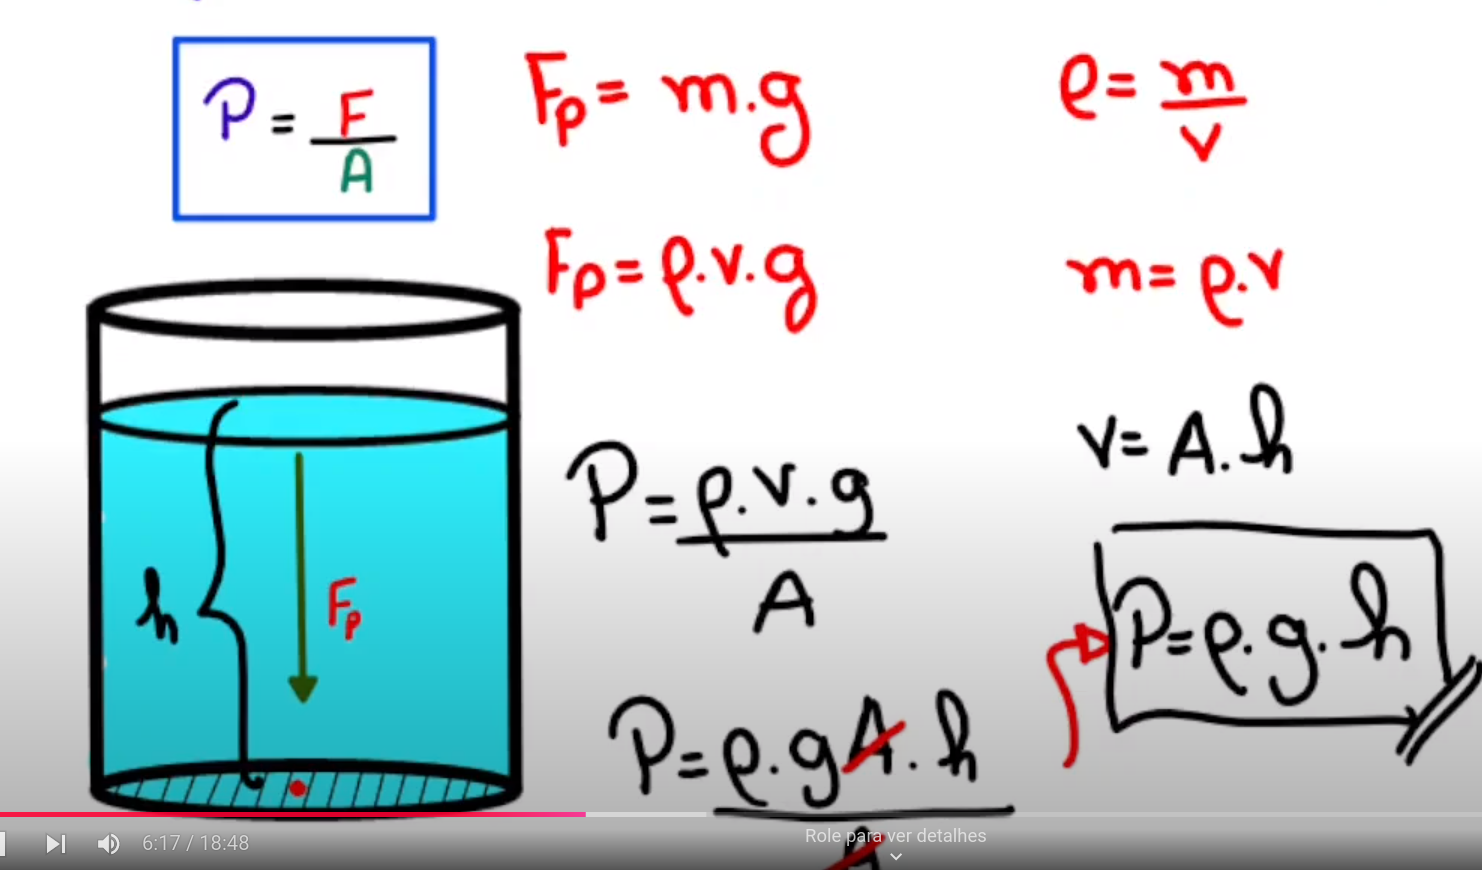 P = F/A
Fp = m.g
ρ = m/v
Fp = ρ.v.g
m = ρ.v
v = A.h
P = ρ.v.g/A
h
Fp
P = ρ.g.h
P = ρ.gA.h/A
6:17 / 18:48
Role para ver detalhes